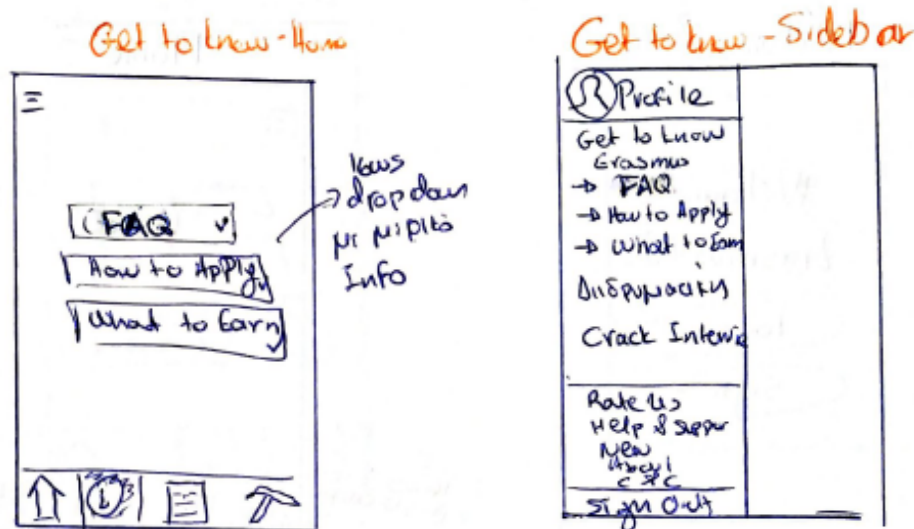 Get to know - Home
FAQ
How to Apply
What to Earn
ίσως
dropdown
με μερικά
Info
Get to know - Sidebar
Profile
Get to know
Erasmus
→ FAQ
→ How to Apply
→ What to Earn
Crack Intervie
Rate Us
Help & Suppor
New
About
Sign Out